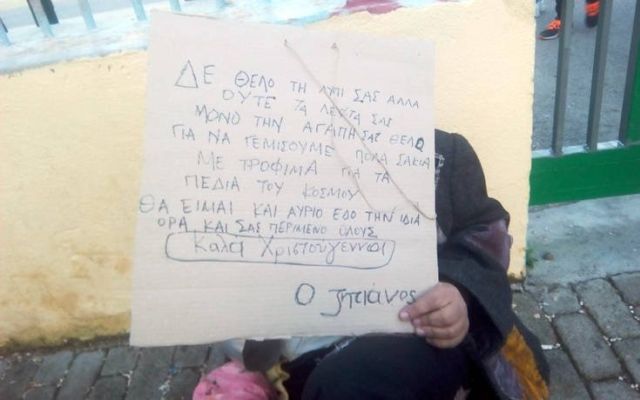 ΔΕ ΘΕΛΟ ΤΗ ΛΥΠΙ ΣΑΣ ΑΛΛΑ
ΟΥΤΕ ΤΑ ΛΕΥΤΑ ΣΑΣ
ΜΟΝΟ ΤΗΝ ΑΓΑΠΗ ΣΑΣ ΘΕΛΩ
ΓΙΑ ΝΑ ΓΕΜΙΣΟΥΜΕ ΠΟΛΑ ΣΑΚΙΑ
ΜΕ ΤΡΟΦΙΜΑ ΓΙΑ ΤΑ
ΠΕΔΙΑ ΤΟΥ ΚΟΣΜΟΥ
ΘΑ ΕΙΜΑΙ ΚΑΙ ΑΥΡΙΟ ΕΔΟ ΤΗΝ ΙΔΙΑ
ΟΡΑ ΚΑΙ ΣΑΣ ΠΕΡΙΜΕΝΟ ΟΛΟΥΣ
Καλα Χριστούγεννα
Ο ζητιάνος